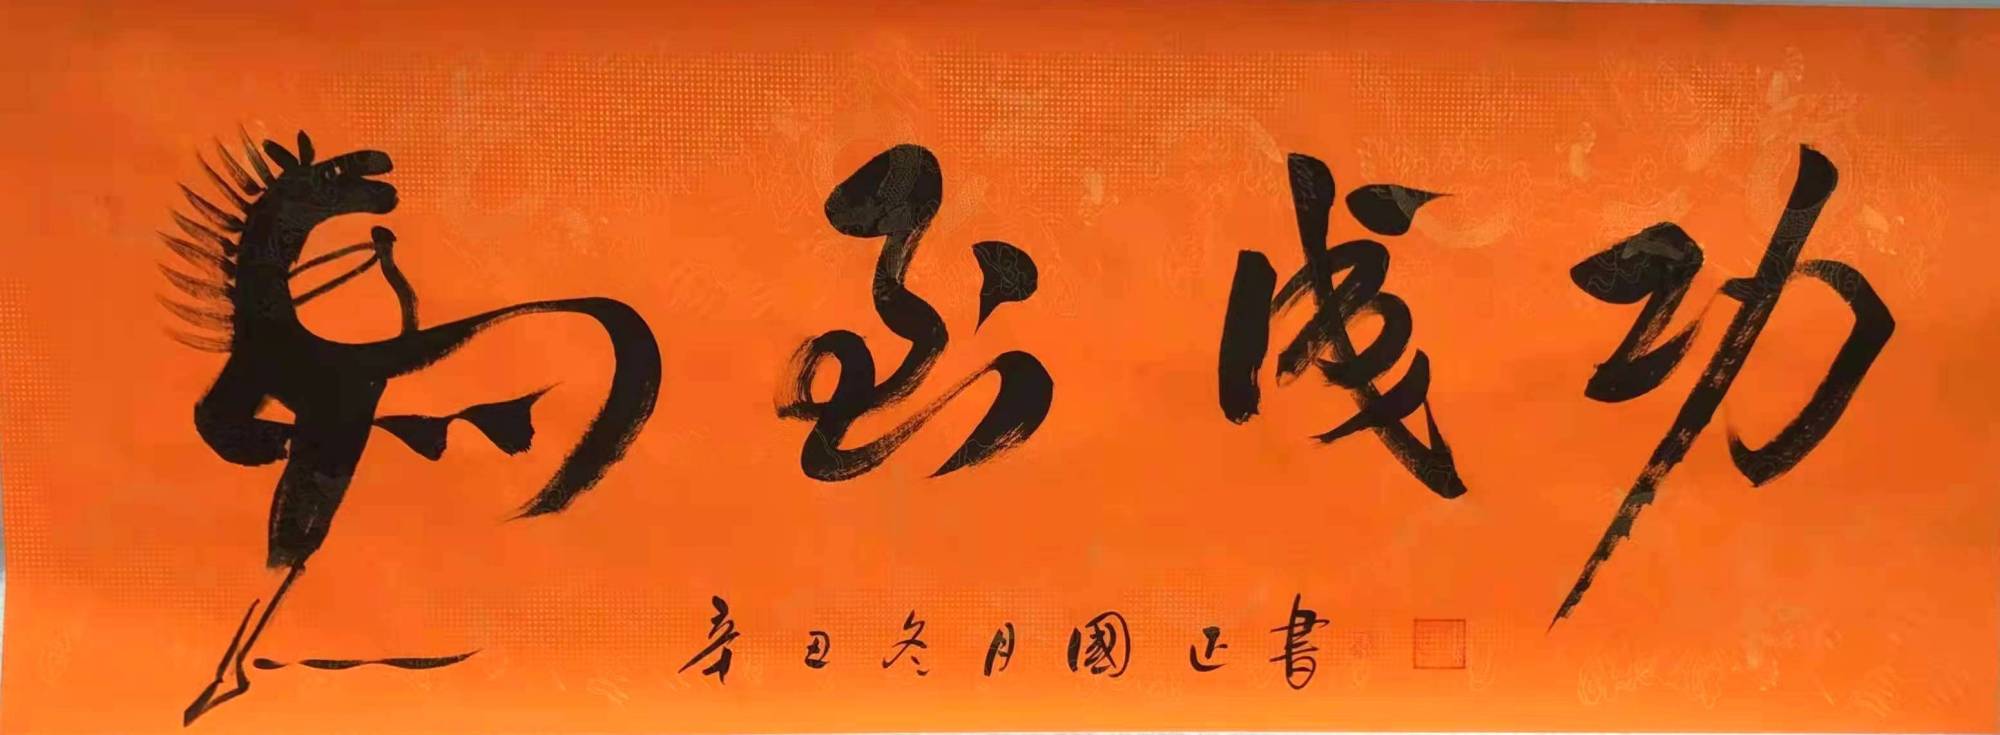 馬到成功
辛丑冬月國正書